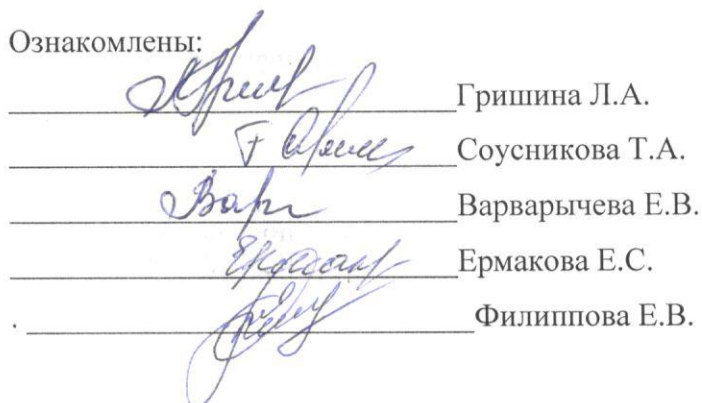 Ознакомлены:
Гришина Л.А.
Соусникова Т.А.
Варварычева Е.В.
Ермакова Е.С.
. Филиппова Е.В.